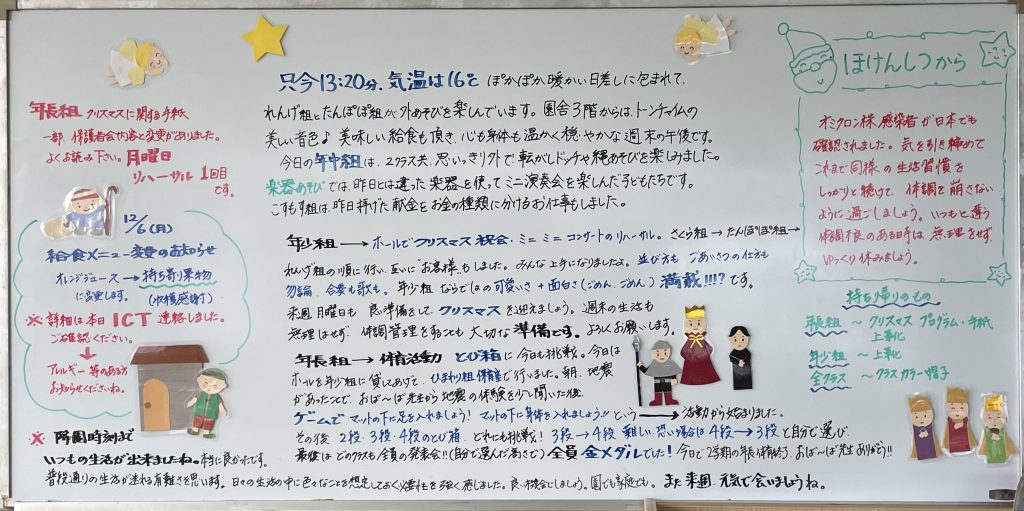 年長組 クリスマスに関する手紙
一部、保護者会内容と変更がありました。
よくお読み下さい。月曜日
リハーサル 1回目
です。
12/6(月)
給食メニュー変更のお知らせ
オレンジジュース→持ち寄り果物
に変更します。(収穫感謝)
※詳細は本日ICT連絡しました。
ご確認ください。
アレルギー等のある方
お知らせくださいね。
※降園時刻まで
いつもの生活が出来ましたね。本当に良かったです。
普段通りの生活が送れる有難さを思います。日々の生活の中に色々なことを想定しておく必要性を強く感じました。良い機会にしましょう。園でも家庭でも。また来週、元気で会いましょうね。
只今13:20分、気温は16℃ ぽかぽか、暖かい日差しに包まれて、
れんげ組とたんぽぽ組が外あそびを楽しんでいます。園舎3階からは、トーンチャイムの
美しい音色♪ 美味しい給食も頂き、心も身体も温かく穏やかな週末の午後です。
今日の年中組は、2クラス共、思いっきり外で転がしドッヂや縄あそびを楽しみました。
楽器あそびでは、昨日とは違った楽器を使ってミニ演奏会を楽しんだ子どもたちです。
こすもす組は、昨日捧げた献金をお金の種類に分けるお仕事もしました。
年少組→ホールでクリスマス祝会・ミニミニコンサートのリハーサル。さくら組→たんぽぽ組→
れんげ組の順に行い、互いに"お客様"もしました。みんな上手になりましたよ。並び方もごあいさつの仕方も
勿論、合奏も歌も。年少組ならではの可愛いさ+面白さ(ごめん、ごめん)満載!!!?です。
来週月曜日も良い準備をして、クリスマスを迎えましょう。週末の生活も
無理はせず、体調管理をすることも大切な準備です。よろしくお願いします。
年長組→体育活動 とび箱に今日も挑戦。今日は
ホールを年少組に貸してあげて、ひまわり組保育室で行いました。朝、地震
があったことで、おば〜ば先生から地震の体験を少し聞いた後、
ゲームでマットの下に足を入れましょう! マットの下に身体を入れましょう!!という→活動から始まりました。
その後、2段・3段・4段のとび箱、どれにも挑戦! 3段→4段 難しい、恐い場合は4段→3段と自分で選び、
最後はどのクラスも全員の発表会!!(自分で選んだ高さで)全員金メダルでした! 今日で2学期の年長体育終了、おば〜ば先生ありがとう!!
ほけんしつから
オミクロン株感染者が日本でも
確認されました。気を引き締めて
これまで同様の生活習慣を
しっかりと続けて、体調を崩さない
ように過ごしましょう。いつもと違う
体調不良のある時は、無理をせず、
ゆっくり休みましょう。
持ち帰りのもの
年長組〜クリスマスプログラム・手紙
上靴
年少組〜上靴
全クラス〜クラスカラー帽子